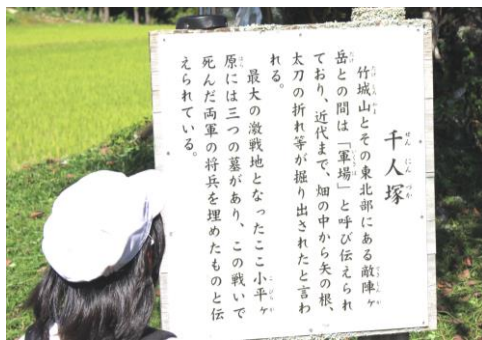 千人塚
竹城山とその東北部にある敵陣ヶ
岳との間は「軍場」と呼び伝えられ
ており、近代まで、畑の中から矢の根、
太刀の折れ等が掘り出されたと言わ
れる。
最大の激戦地となったここ小平ヶ
原には三つの墓があり、この戦いで
死んだ両軍の将兵を埋めたものと伝
えられている。